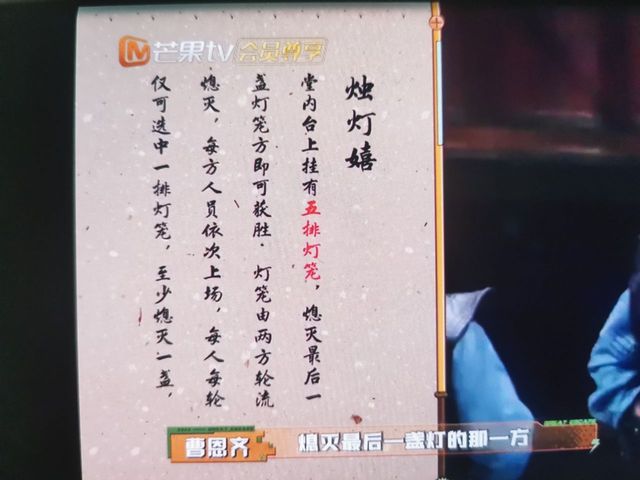 芒果tv 会员尊享
烛灯嬉
堂内台上挂有五排灯笼，熄灭最后一
盏灯笼方即可获胜。灯笼由两方轮流
熄灭，每方人员依次上场，每人每轮
仅可选中一排灯笼，至少熄灭一盏，
曹恩齐
熄灭最后一盏灯的那一方